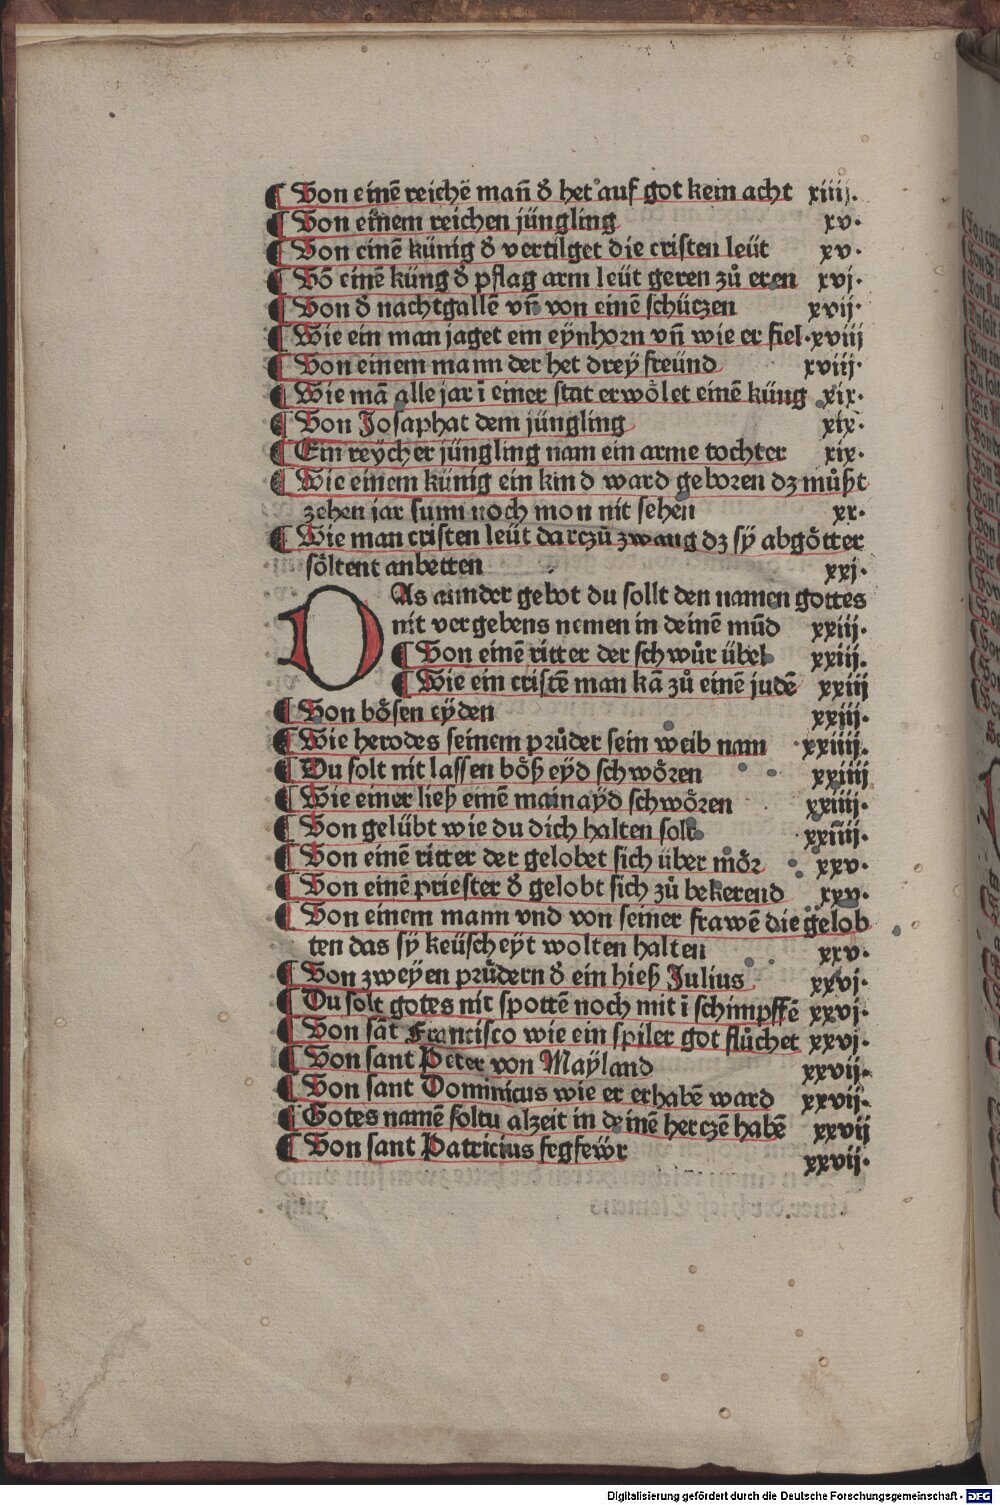 ¶ Von einē reichē man̄ d̓ het auf got kein acht xiiij.
¶ Von einem reichen jüngling xv.
¶ Von einē künig d̓ vertilget die cristen leüt xv.
¶ Vō einē küng d̓ pflag arm leüt geren zů eren xvj.
¶ Von d̓ nachtgallē vn̄ von einē schüczen xvij.
¶ Wie ein man jaget ein eynhorn vn̄ wie er fiel. xviii
¶ Von einem mann der het dreÿ freünd xviij.
¶ Wie mā alle jar ī einer stat erwölet einē küng xix.
¶ Von Josaphat dem jüngling xix.
¶ Ein reÿcher jüngling nam ein arme tochter xix.
¶ Wie einem künig ein kind ward geboren dz můßt
zehen iar sunn noch mon nit sehen xx.
¶ Wie man cristen leüt darczů zwang dz sÿ abgötter
söltent anbetten xxj.
DAs ander gebot du sollt den namen gottes
nit vergebens nemen in deinē mūd xxiij.
¶ Von einē ritter der schwůr übel xxiij.
¶ Wie ein cristē man kā zů einē judē xxiij
¶ Von bösen eÿden xxiij.
¶ Wie herodes seinem průder sein weib nam xxiiij.
¶ Du solt nit lassen böß eÿd schwören xxiiij
¶ Wie einer ließ einē mainaÿd schwören xxiiij.
¶ Von gelübt wie du dich halten solt xxiiij.
¶ Von einē ritter der gelobet sich über mör xxv.
¶ Von einē priester d̓ gelobt sich zů bekerend xxv.
¶ Von einem mann vnd von seiner frawē die gelob
ten das sÿ keüscheÿt wolten halten xxv.
¶ Von zweÿen průdern d̓ ein hieß Julius xxvj.
¶ Du solt gotes nit spottē noch mit ī schimpffē xxvj.
¶ Von sāt Francisco wie ein spiler got flůchet xxvj.
¶ Von sant Peter von Maÿland xxvij.
¶ Von sant Dominicus wie er erhabē ward xxvij.
¶ Gotes namē soltu alzeit in deinē herczē habē xxvij
¶ Von sant Patricius fegfewr xxvij.
Digitalisierung gefördert durch die Deutsche Forschungsgemeinschaft - DFG